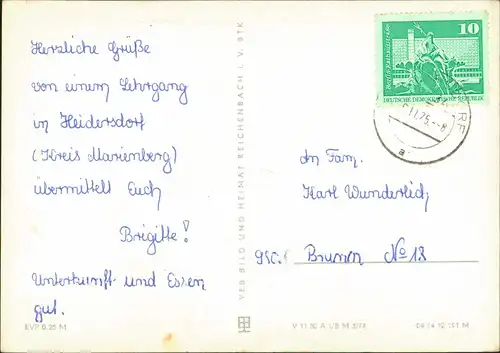 Herzliche Grüße
von einem Lehrgang
in Heidersdorf
(Kreis Marienberg)
übermittelt Euch
Brigitte!
Unterkunft und Essen
gut.
EVP 0,25 M
VEB BILD UND HEIMAT REICHENBACH I. V. BTK
10
Berlin-Rathausstraße
DEUTSCHE DEMOKRATISCHE REPUBLIK
a
An Fam.
Karl Wunderlich
Brunn No 18
V 11 50 A 1/B M